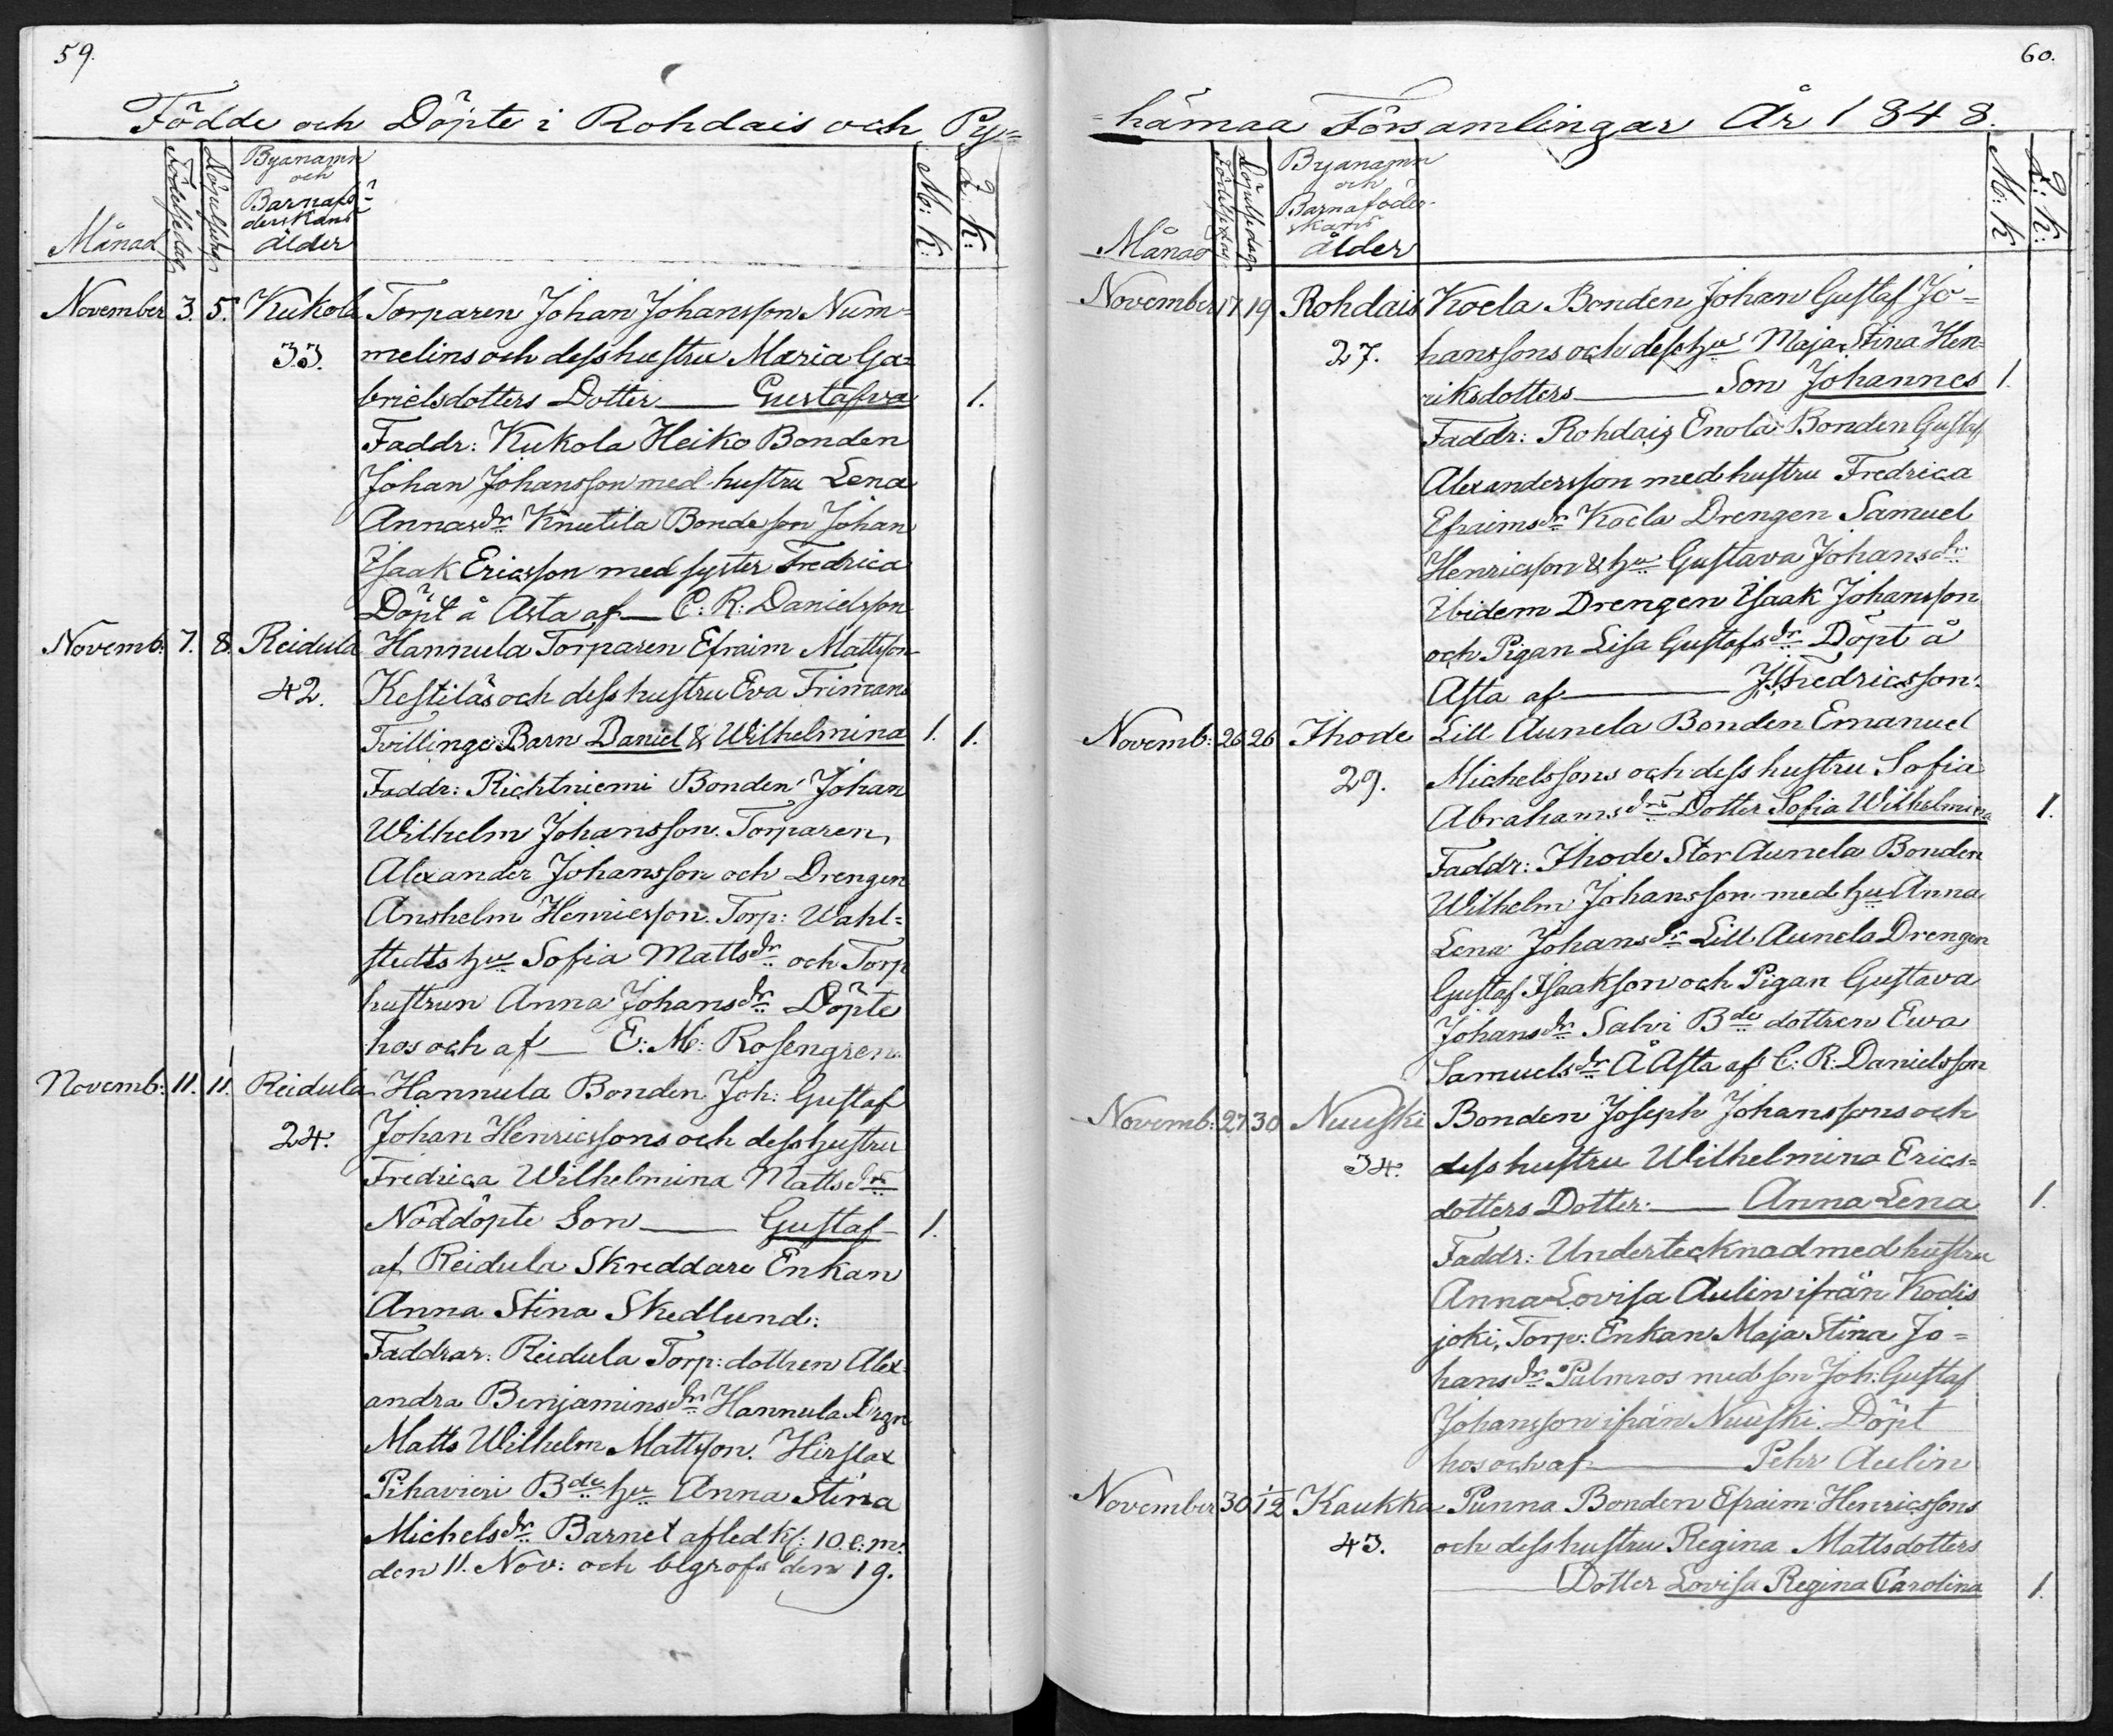 59.
Födde och Döpte i Rohdais och Py=
Månad
Födelsedag
Döpelsedag
Byanamn
och
Barnafö=
derskans
ålder
M: K:
Q: K:
November 3. 5. Kukola Torparen Johan Johansson Num=
33. melins och dess hustru Maria Ga=
brielsdotters Dotter Gustafva 1.
Faddr: Kukola Heiko Bonden
Johan Johansson med hustru Lena
Annasdr Knutila Bondeson Johan
Isaak Ericsson med syster Fredrica
Döpt å Asta af C: R: Danielsson
Novemb: 7. 8. Reidula Hannula Torparen Efraim Mattsson
42. Kestiläs och dess hustru Eva Frimans
Tvillinge Barn Daniel & Wilhelmina 1. 1.
Faddr: Richtniemi Bonden Johan
Wilhelm Johansson. Torparen
Alexander Johansson och Drengen
Anshelm Henricsson. Torp: Wahl=
stedts hu Sofia Mattsdr och Torp
hustrun Anna Johansdr Döpte
hos och af E: M: Rosengren.
Novemb: 11. 11. Reidula Hannula Bonden Joh: Gustaf
24. Johan Henricssons och dess hustru
Fredrica Wilhelmina Mattsdrs
Nöddöpte Son Gustaf 1.
af Reidula Skreddare Enkan
Anna Stina Skedlund:
Faddrar: Reidula Torp: dottren Alex=
andra Benjaminsdr Hannula Drgn
Matts Wilhelm Mattsson. Hirslax
Pihavieri Bde hu Anna Stina
Michelsdr Barnet afled kl: 10. e: m:
den 11. Nov: och begrofs den 19.
60.
=hämaa Församlingar År 1848.
Månad
Födelsedag
Döpelsedag
Byanamn
och
Barnaföder-
skans
ålder
M: K
Q: K:
November 17 19 Rohdais Kocla Bonden Johan Gustaf Jo=
27. hanssons och dess hu Maja Stina Hen=
riksdotters Son Johannes 1.
Faddr: Rohdais Enola Bonden Gustaf
Alexandersson med hustru Fredrica
Efraimsdr Kocla Drengen Samuel
Henricsson & hu Gustava Johansdr
Ibidem Drengen Isaak Johansson
och Pigan Lisa Gustafsdr Döpt å
Asta af Fredricsson.
Novemb: 26 26 Ihode Lill Aunela Bonden Emanuel
29. Michelssons och dess hustru Sofia
Abrahamsdrs Dotter Sofia Wilhelmina 1.
Faddr: Ihode Stor Aunela Bonden
Wilhelm Johansson med hu Anna
Lena Johansdr Lill Aunela Drengen
Gustaf Isaaksson och Pigan Gustava
Johansdr Salvi Bde dottren Ewa
Samuelsdr Å Asta af C: R: Danielsson
Novemb: 27 30 Nuuski Bonden Joseph Johanssons och
34. dess hustru Wilhelmina Erics=
dotters Dotter: Anna Lena 1.
Faddr: Undertecknad med hustru
Anna Lovisa Aulin ifrån Kodis
joki, Torp: Enkan Maja Stina Jo=
hansdr Palmros med son Joh: Gustaf
Johansson ifrån Nuuski. Döpt
hos och af Pehr Aulin
November 30 1/12 Kaukka Punna Bonden Efraim Henricssons
43. och dess hustru Regina Mattsdotters
Dotter Lovisa Regina Carolina 1.